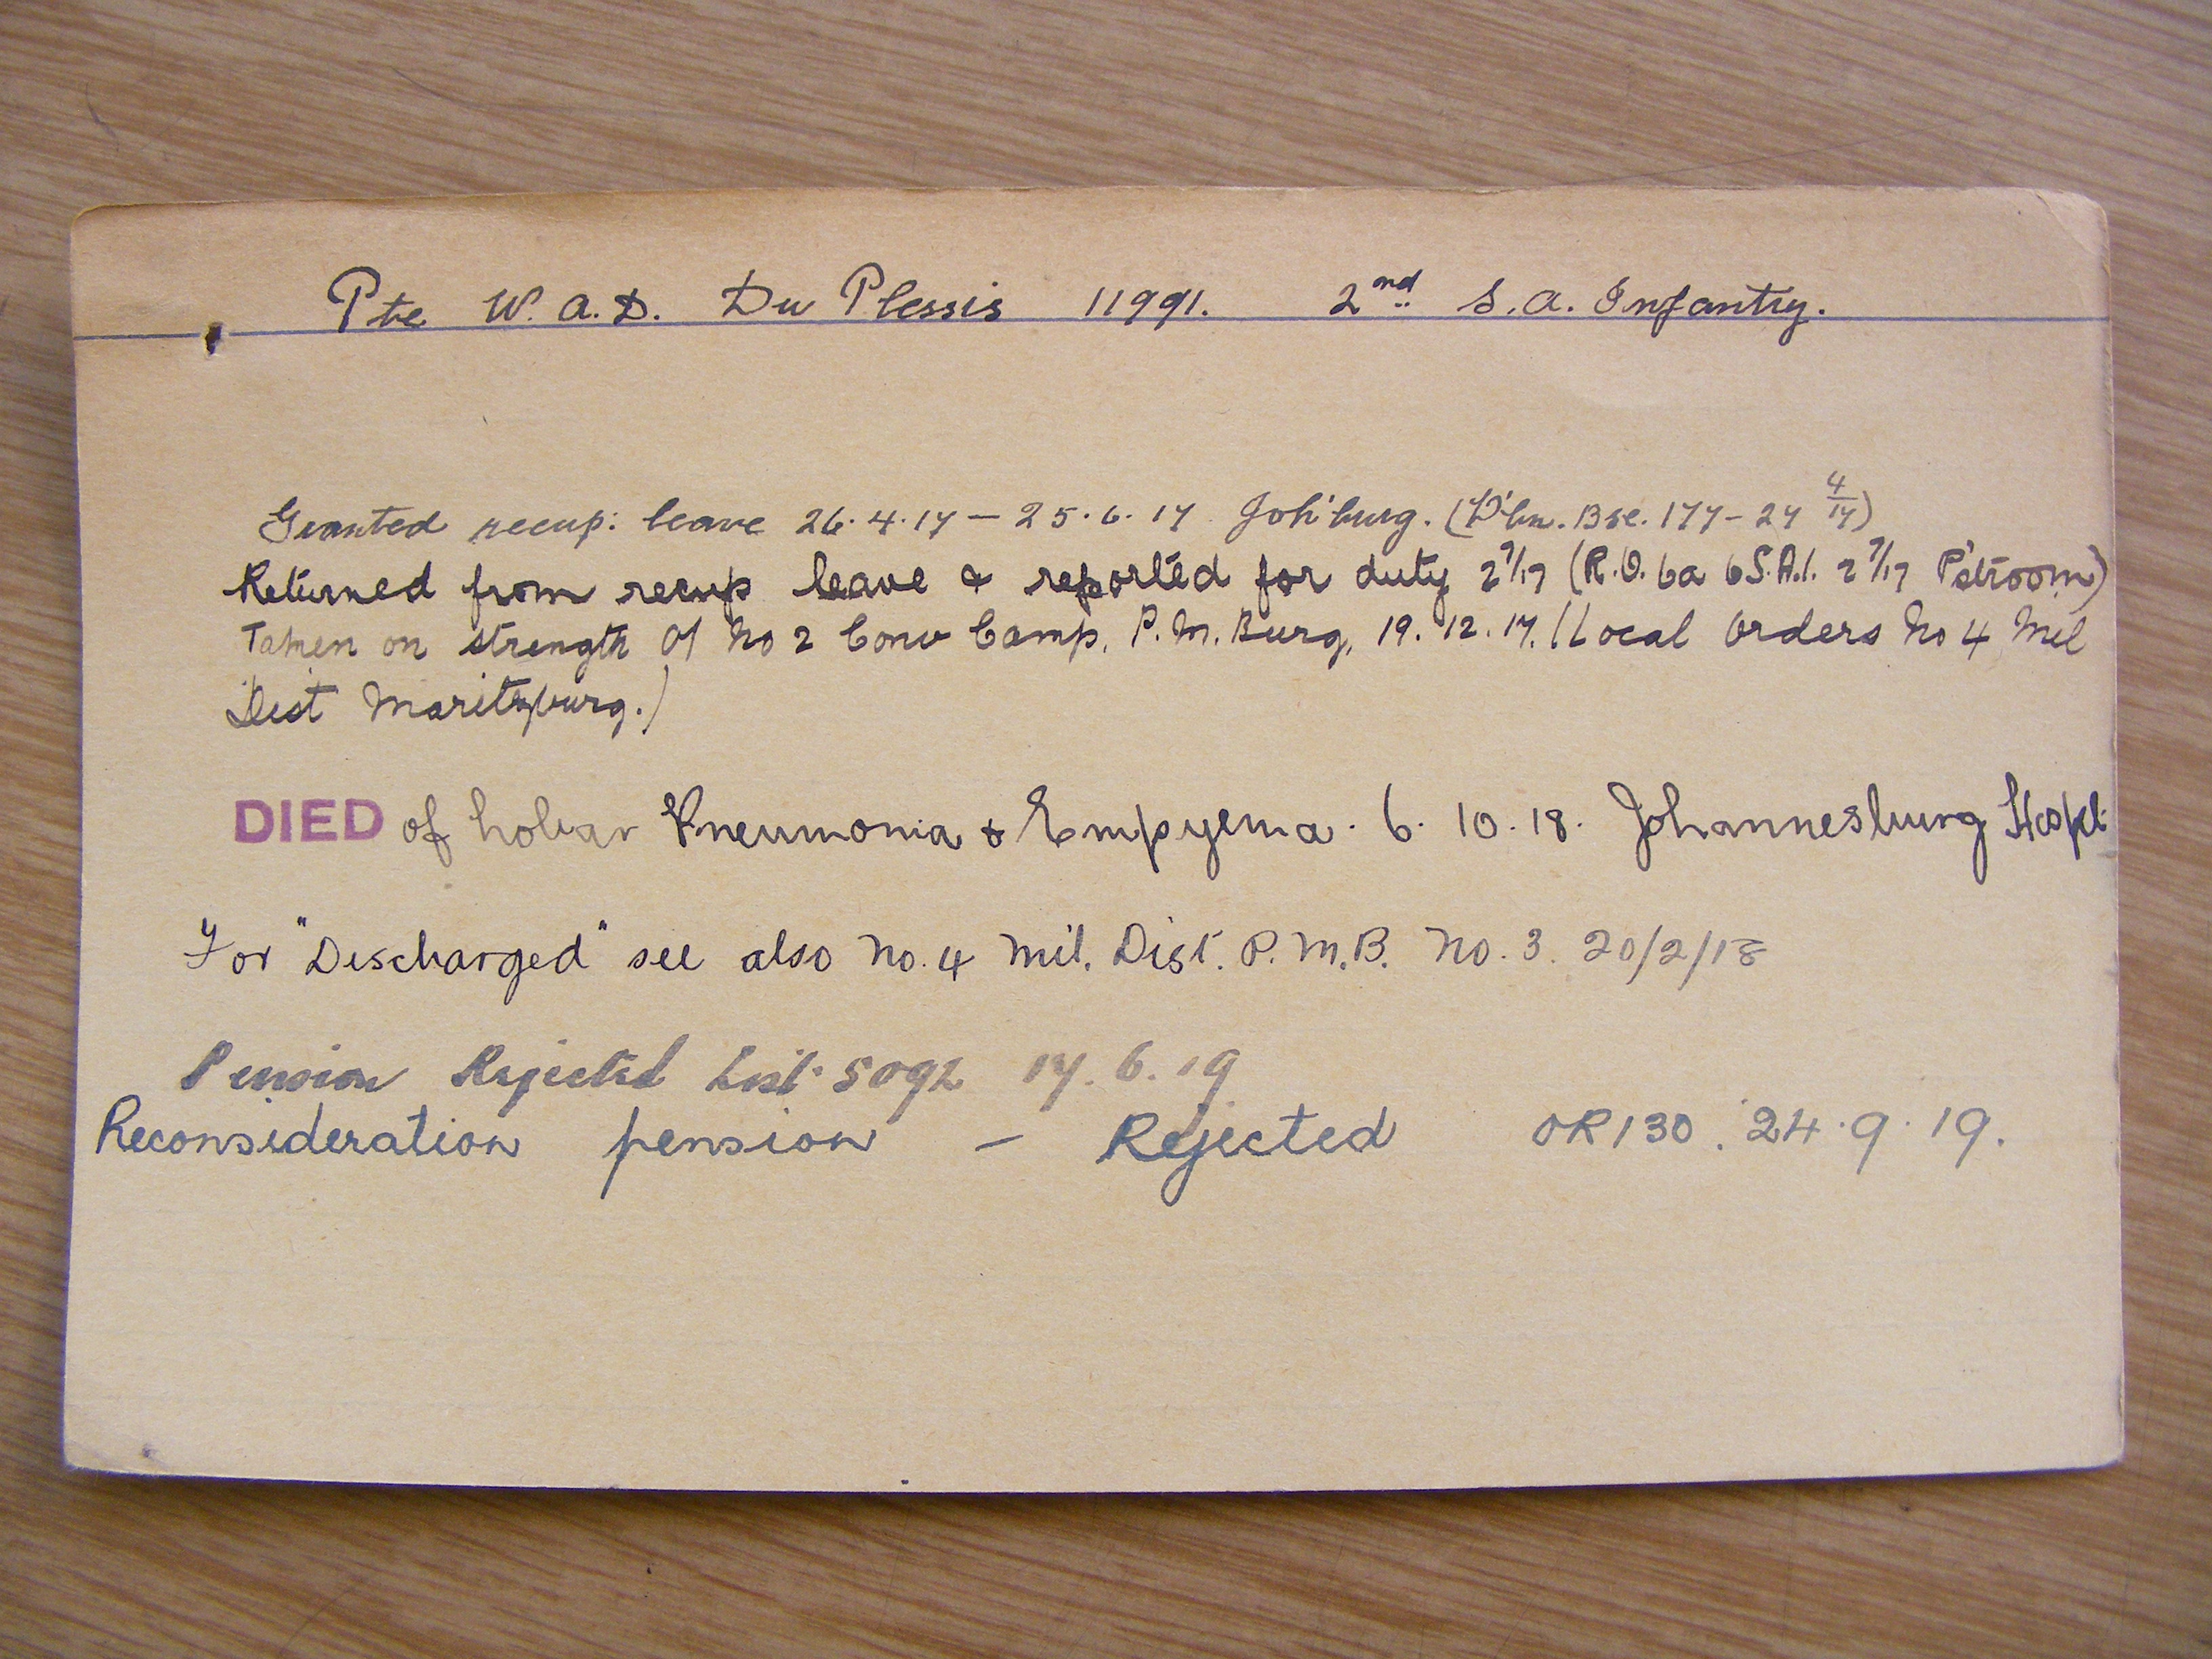 Pte W. A. D. Du Plessis 11991. 2nd S. A. Infantry.
Granted recup: leave 26.4.17 – 25.6.17 Joh'burg. (D'bn. Bse. 177 – 27 4/17)
Returned from recup leave & reported for duty 2 7/17 (R.O. 6a 6 S.A.I. 2 7/17 P'stroom)
Taken on strength of No 2 Conv Camp, P. M. Burg, 19.12.17. (Local Orders No 4 Mil
Dist Maritzburg.)
DIED of Lobar Pneumonia & Empyema. 6. 10. 18. Johannesburg Hospl.
For "Discharged" see also No. 4 Mil. Dist. P. M. B. No. 3. 20/2/18
Pension Rejected List 5092 17. 6. 19
Reconsideration pension – Rejected OR 130. 24. 9. 19.